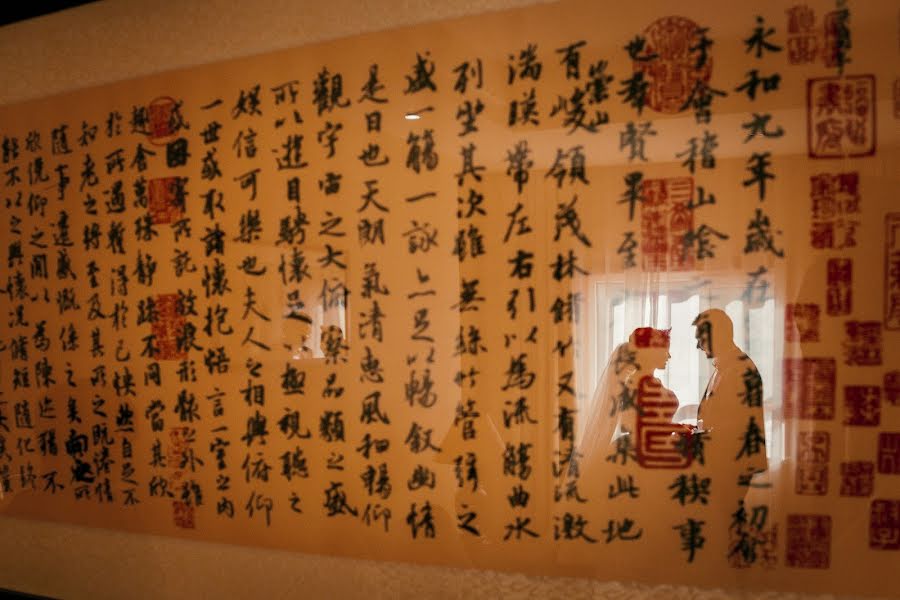 永和九年歲在暮春之初會
于會稽山陰脩稧事
也羣賢畢至長咸集此地
有崇山峻領茂林脩竹又有清流激
湍暎帶左右引以為流觴曲水
列坐其次雖無絲竹管弦之
盛一觴一詠亦足以暢敘幽情
是日也天朗氣清惠風和暢仰
觀宇宙之大俯察品類之盛
所以遊目騁懷足以極視聽之
娛信可樂也夫人之相與俯仰
一世或取諸懷抱悟言一室之內
或因寄所託放浪形骸之外雖
趣舍萬殊靜躁不同當其欣
於所遇蹔得於己怏然自足不
知老之將至及其所之既惓情
隨事遷感慨係之矣向之所
欣俛仰之閒以為陳迹猶不
能不以之興懷況脩短隨化終